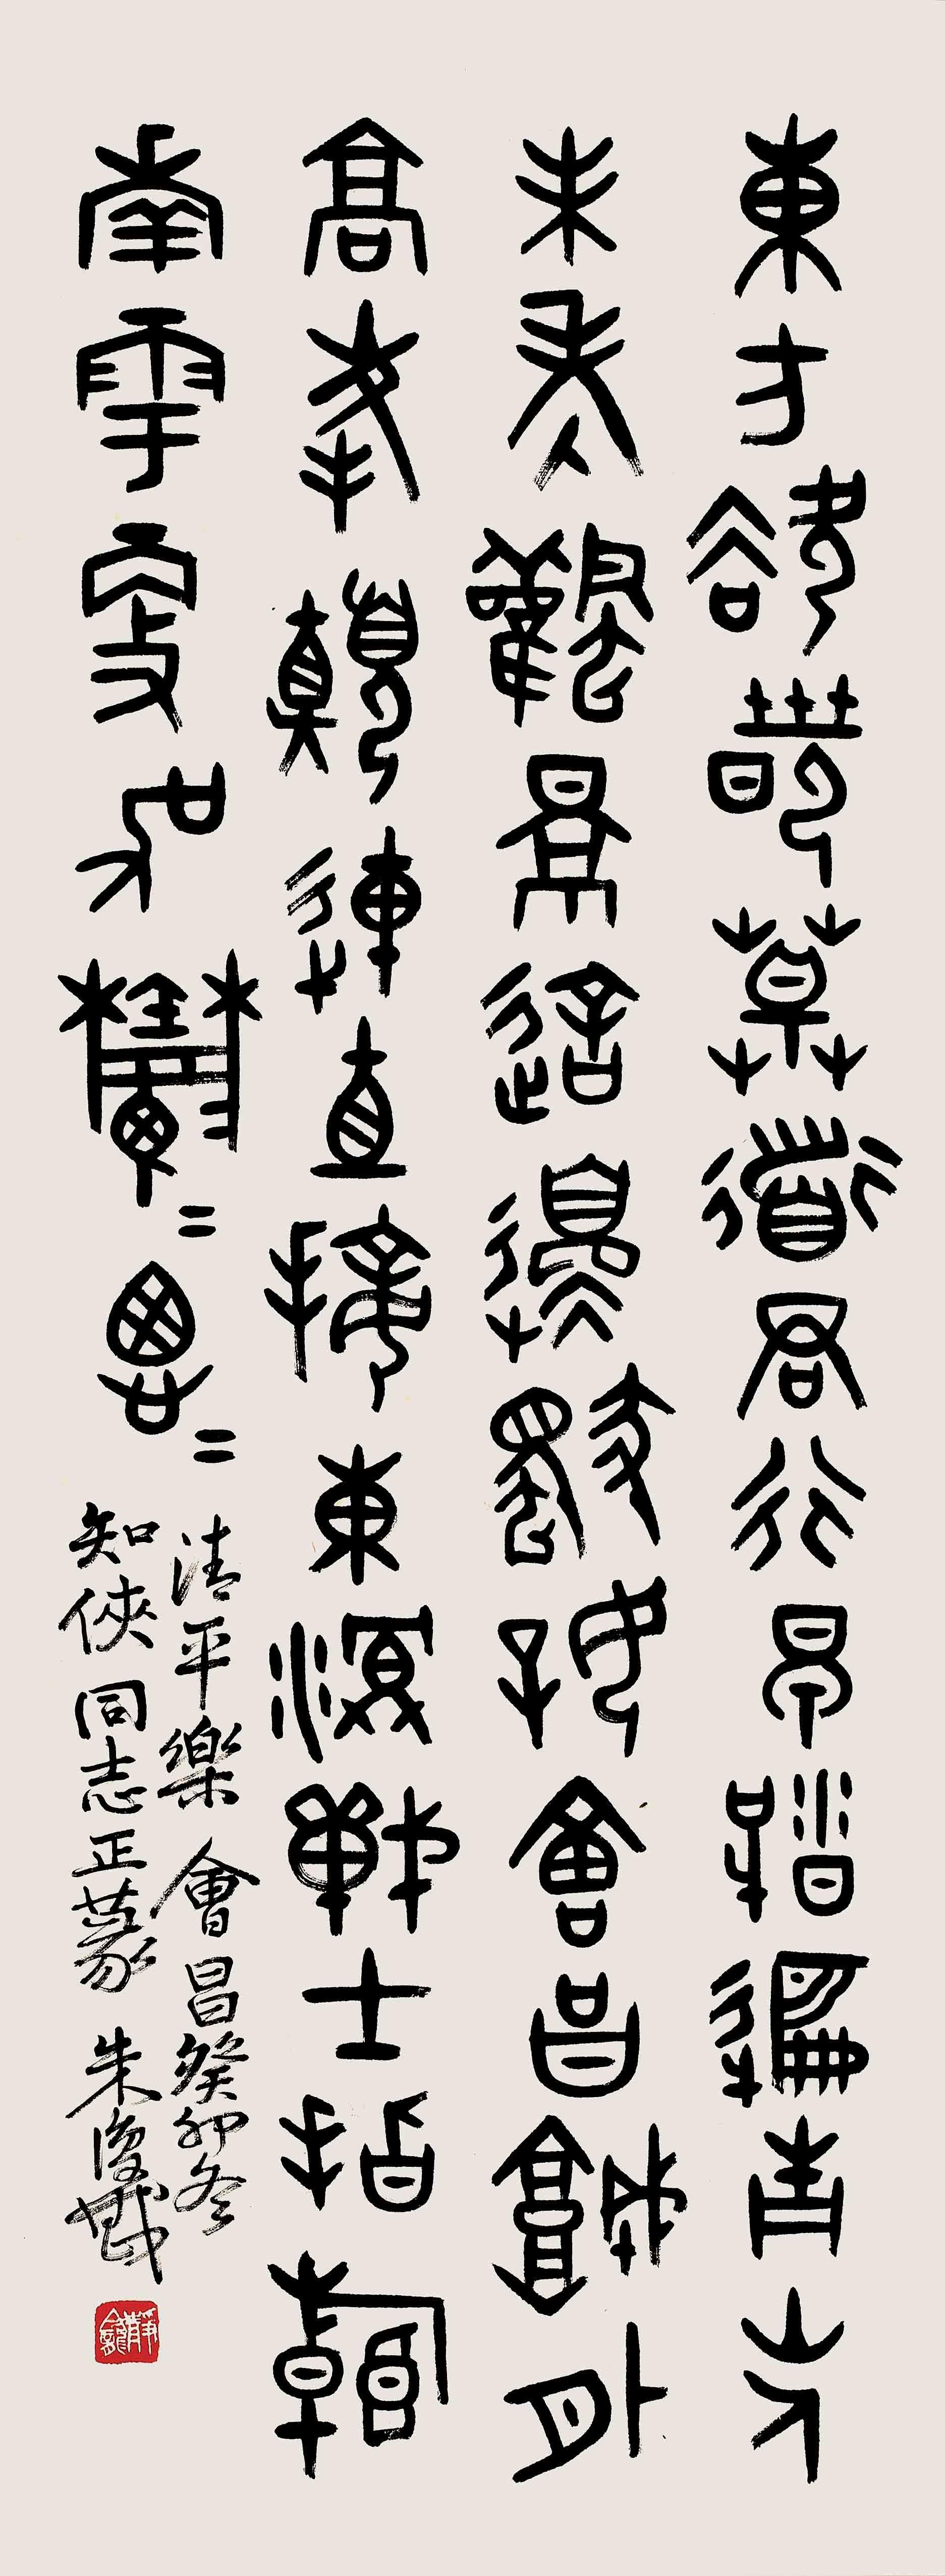 東方欲曉莫道君行早踏遍青山人
未老風景這邊獨好會昌城外
高峰顛連直接東溟戰士指看
南雩更加鬱〻葱〻
清平樂 會昌 癸卯冬
知俠同志正篆 朱復戡
靜龕